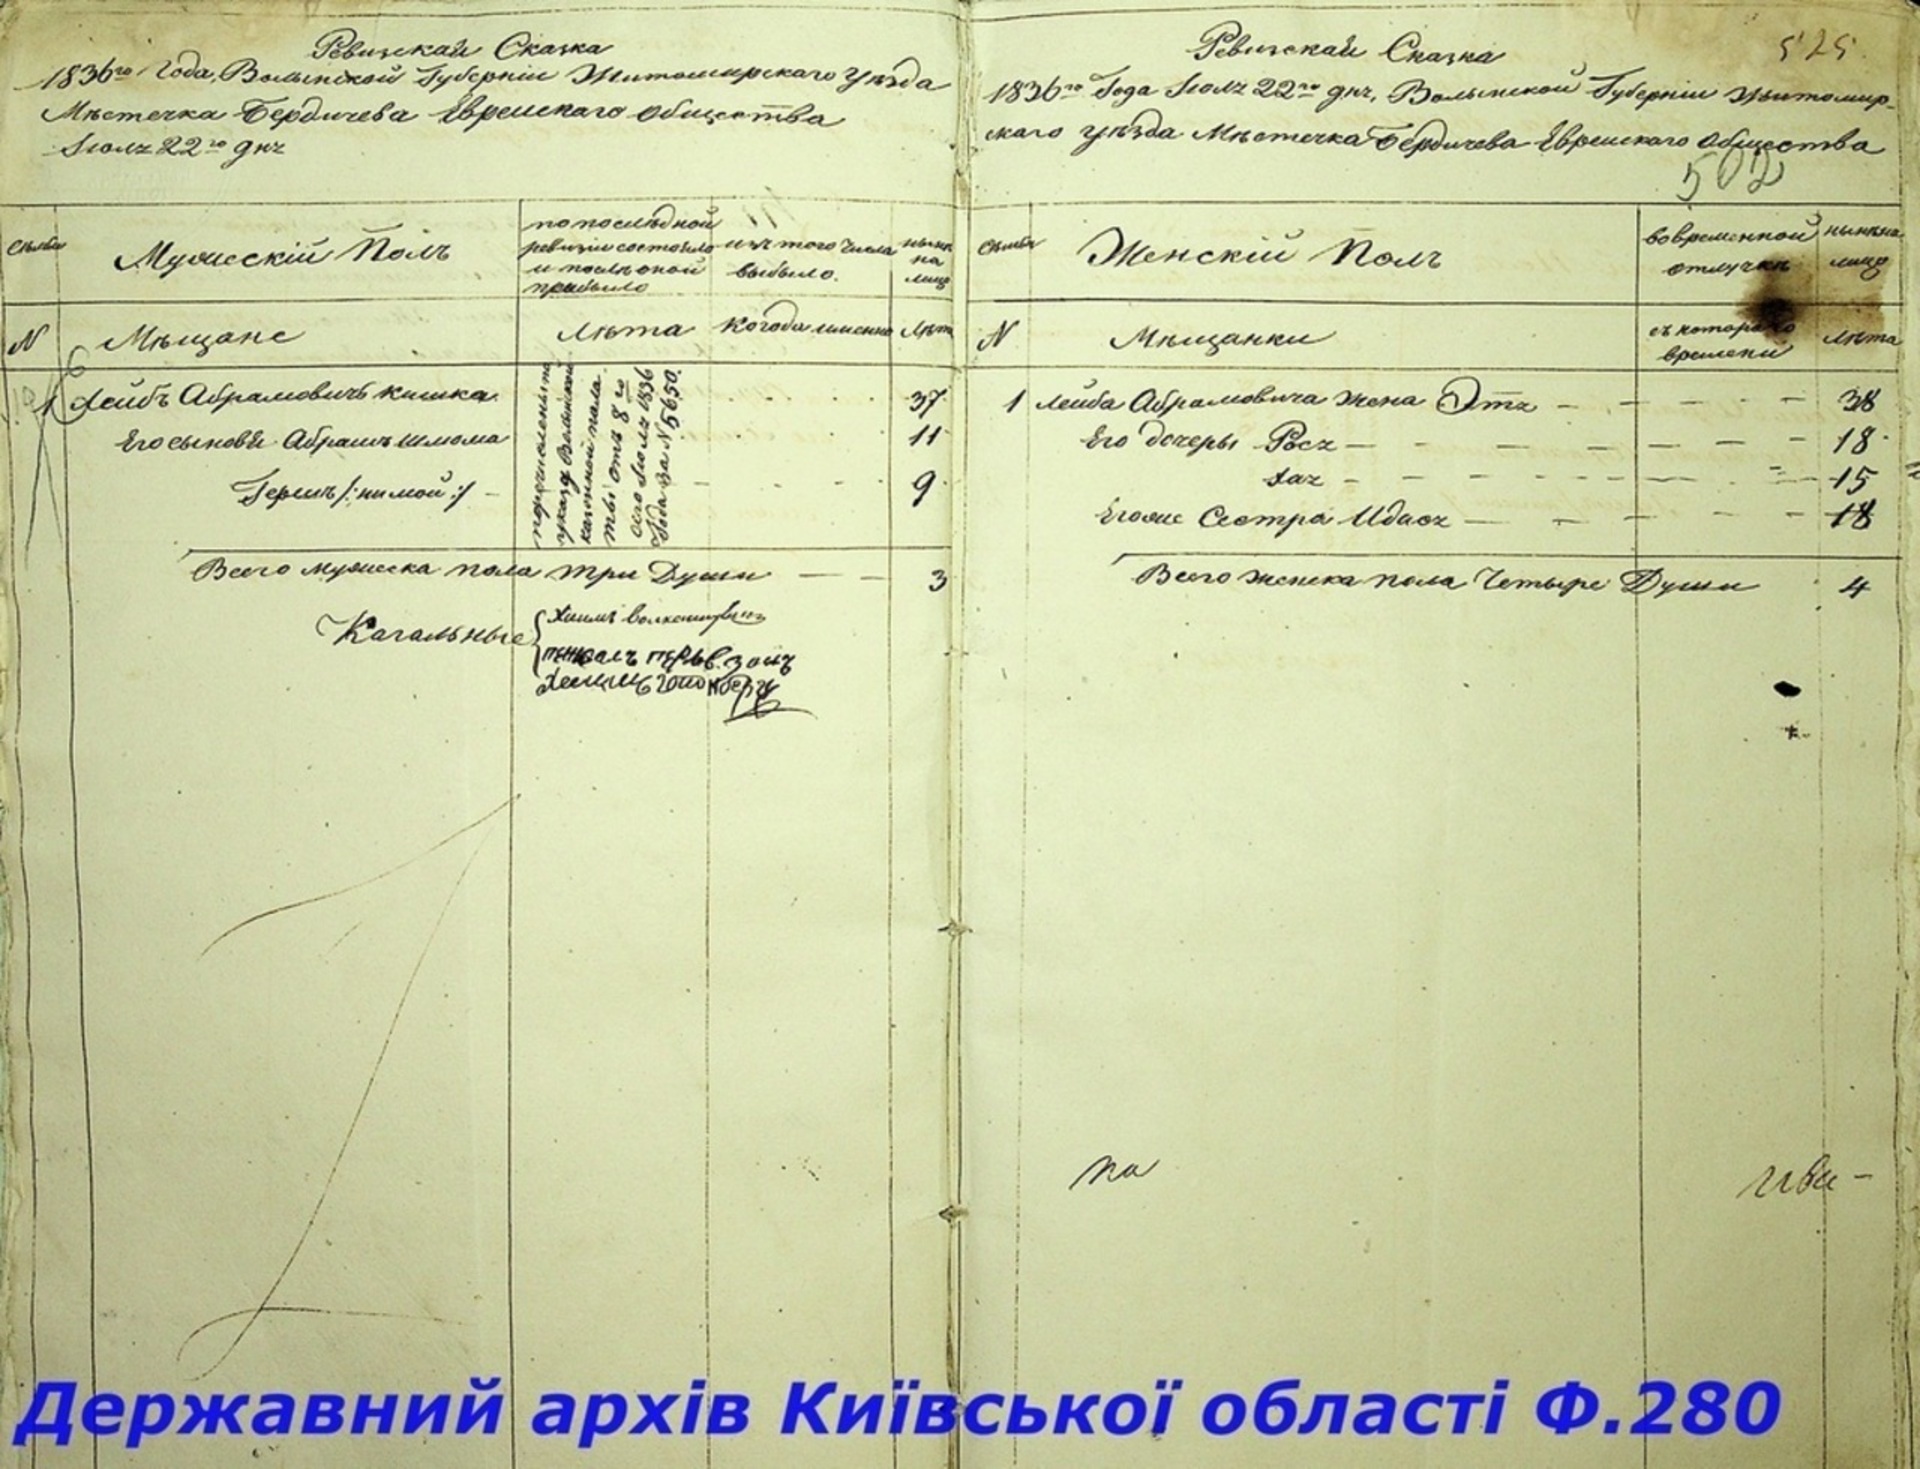 Ревизская Сказка
1836го Года, Волынской Губерніи Житомирскаго уѣзда
Мѣстечка Бердичева Еврейскаго общества
Іюля 22го дня
Семьи
Мужескій Полъ
по последной ревизіи состояло и после оной прибыло
изъ того числа выбыло.
нынѣ на лицо
N
Мѣщане
Лѣта
Когда именно
Лѣта
1 Лейбъ Абрамовичъ кишка 37
Его сыновья Абрамъ шлома 11
Гершъ /: нимой :/ 9
перечислены по
указу Волынской
казенной пала
ты отъ 8го
сего Іюля 1836
Года за N 5650.
Всего мужеска пола три Души 3
Кагальные
Ревизская Сказка
525
1836го Года Іюля 22го дня, Волынской Губерніи Житомир-
скаго уѣзда Мѣстечка Бердичева Еврейскаго общества
502
Семьи
Женскій Полъ
во временной отлучке
ныне на лицо
N
Мѣщанки
съ котораго времени
Лѣта
1 Лейба Абрамовича жена Этя 38
Его дочеры Рося 18
Хая 15
Егоже Сестра Идася 18
Всего женска пола Четыре Души 4
по
Державний архів Київської області Ф.280